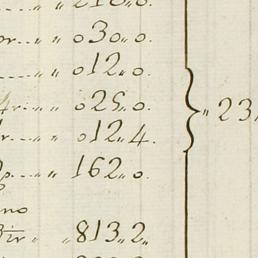 210 „ 0.
or... „ „ 030 „ 0.
..... „ „ 012 „ 0.
4r... „ „ 025 „ 0.
r... „ „ 012 „ 4. „ 23 „
.... „ „ 162 „ 0.
no
„ „ 813 „ 2 „